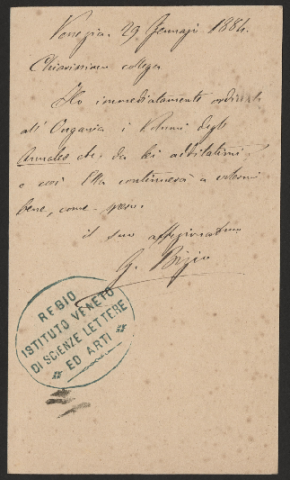 Venezia, 29 Gennajo 1884.
Chiarissimo collega
Ho immediatamente ordinato
all'Ongania i Volumi degli
Annales che da lei additatimi
e così Ella continuerà a volermi
bene, come
il suo affezionatissimo
G. Bizio
REGIO
ISTITUTO VENETO
DI SCIENZE LETTERE
ED ARTI